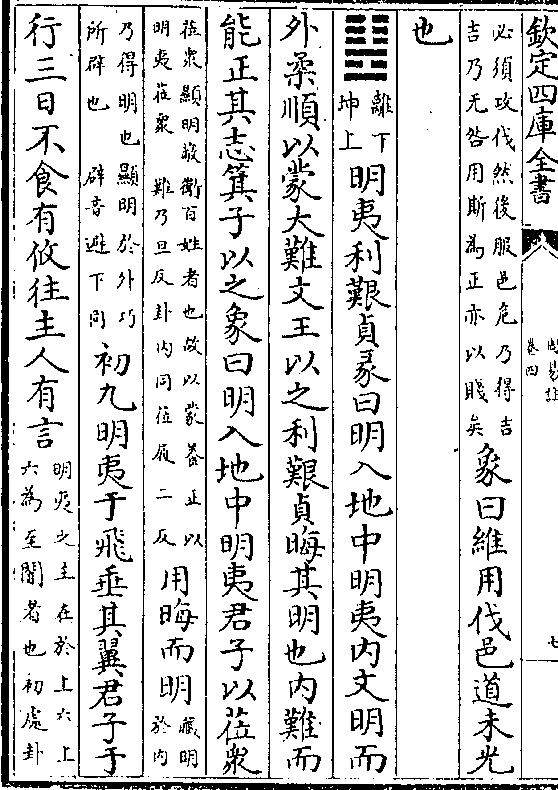 欽定四庫全書
周易注
卷四
七
必須攻伐然後服邑危乃得吉
吉乃无咎用斯為正亦以賤矣
象曰維用伐邑道未光
也
離下
坤上
明夷利艱貞彖曰明入地中明夷内文明而
外柔順以蒙大難文王以之利艱貞晦其明也内難而
能正其志箕子以之象曰明入地中明夷君子以莅衆
莅衆顯明蔽偽百姓者也故以蒙養正以
明夷莅衆 難乃旦反卦内同莅履二反
用晦而明
藏明於内
乃得明也顯明於外巧
所辟也 辟音避下同
初九明夷于飛垂其翼君子于
行三日不食有攸往主人有言
明夷之主在於上六上
六為至闇者也初處卦